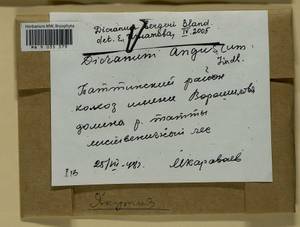 Herbarium MW, Bryophyta
Dicranum bergeri Bland.
det. E. Ignatova, IV.2005
Dicranum Angustum
Lindb.
Таттинский район
колхоз имени Ворошилова
долина р. Татты
лиственничный лес
25/VII-48г. М Караваев
Якутия